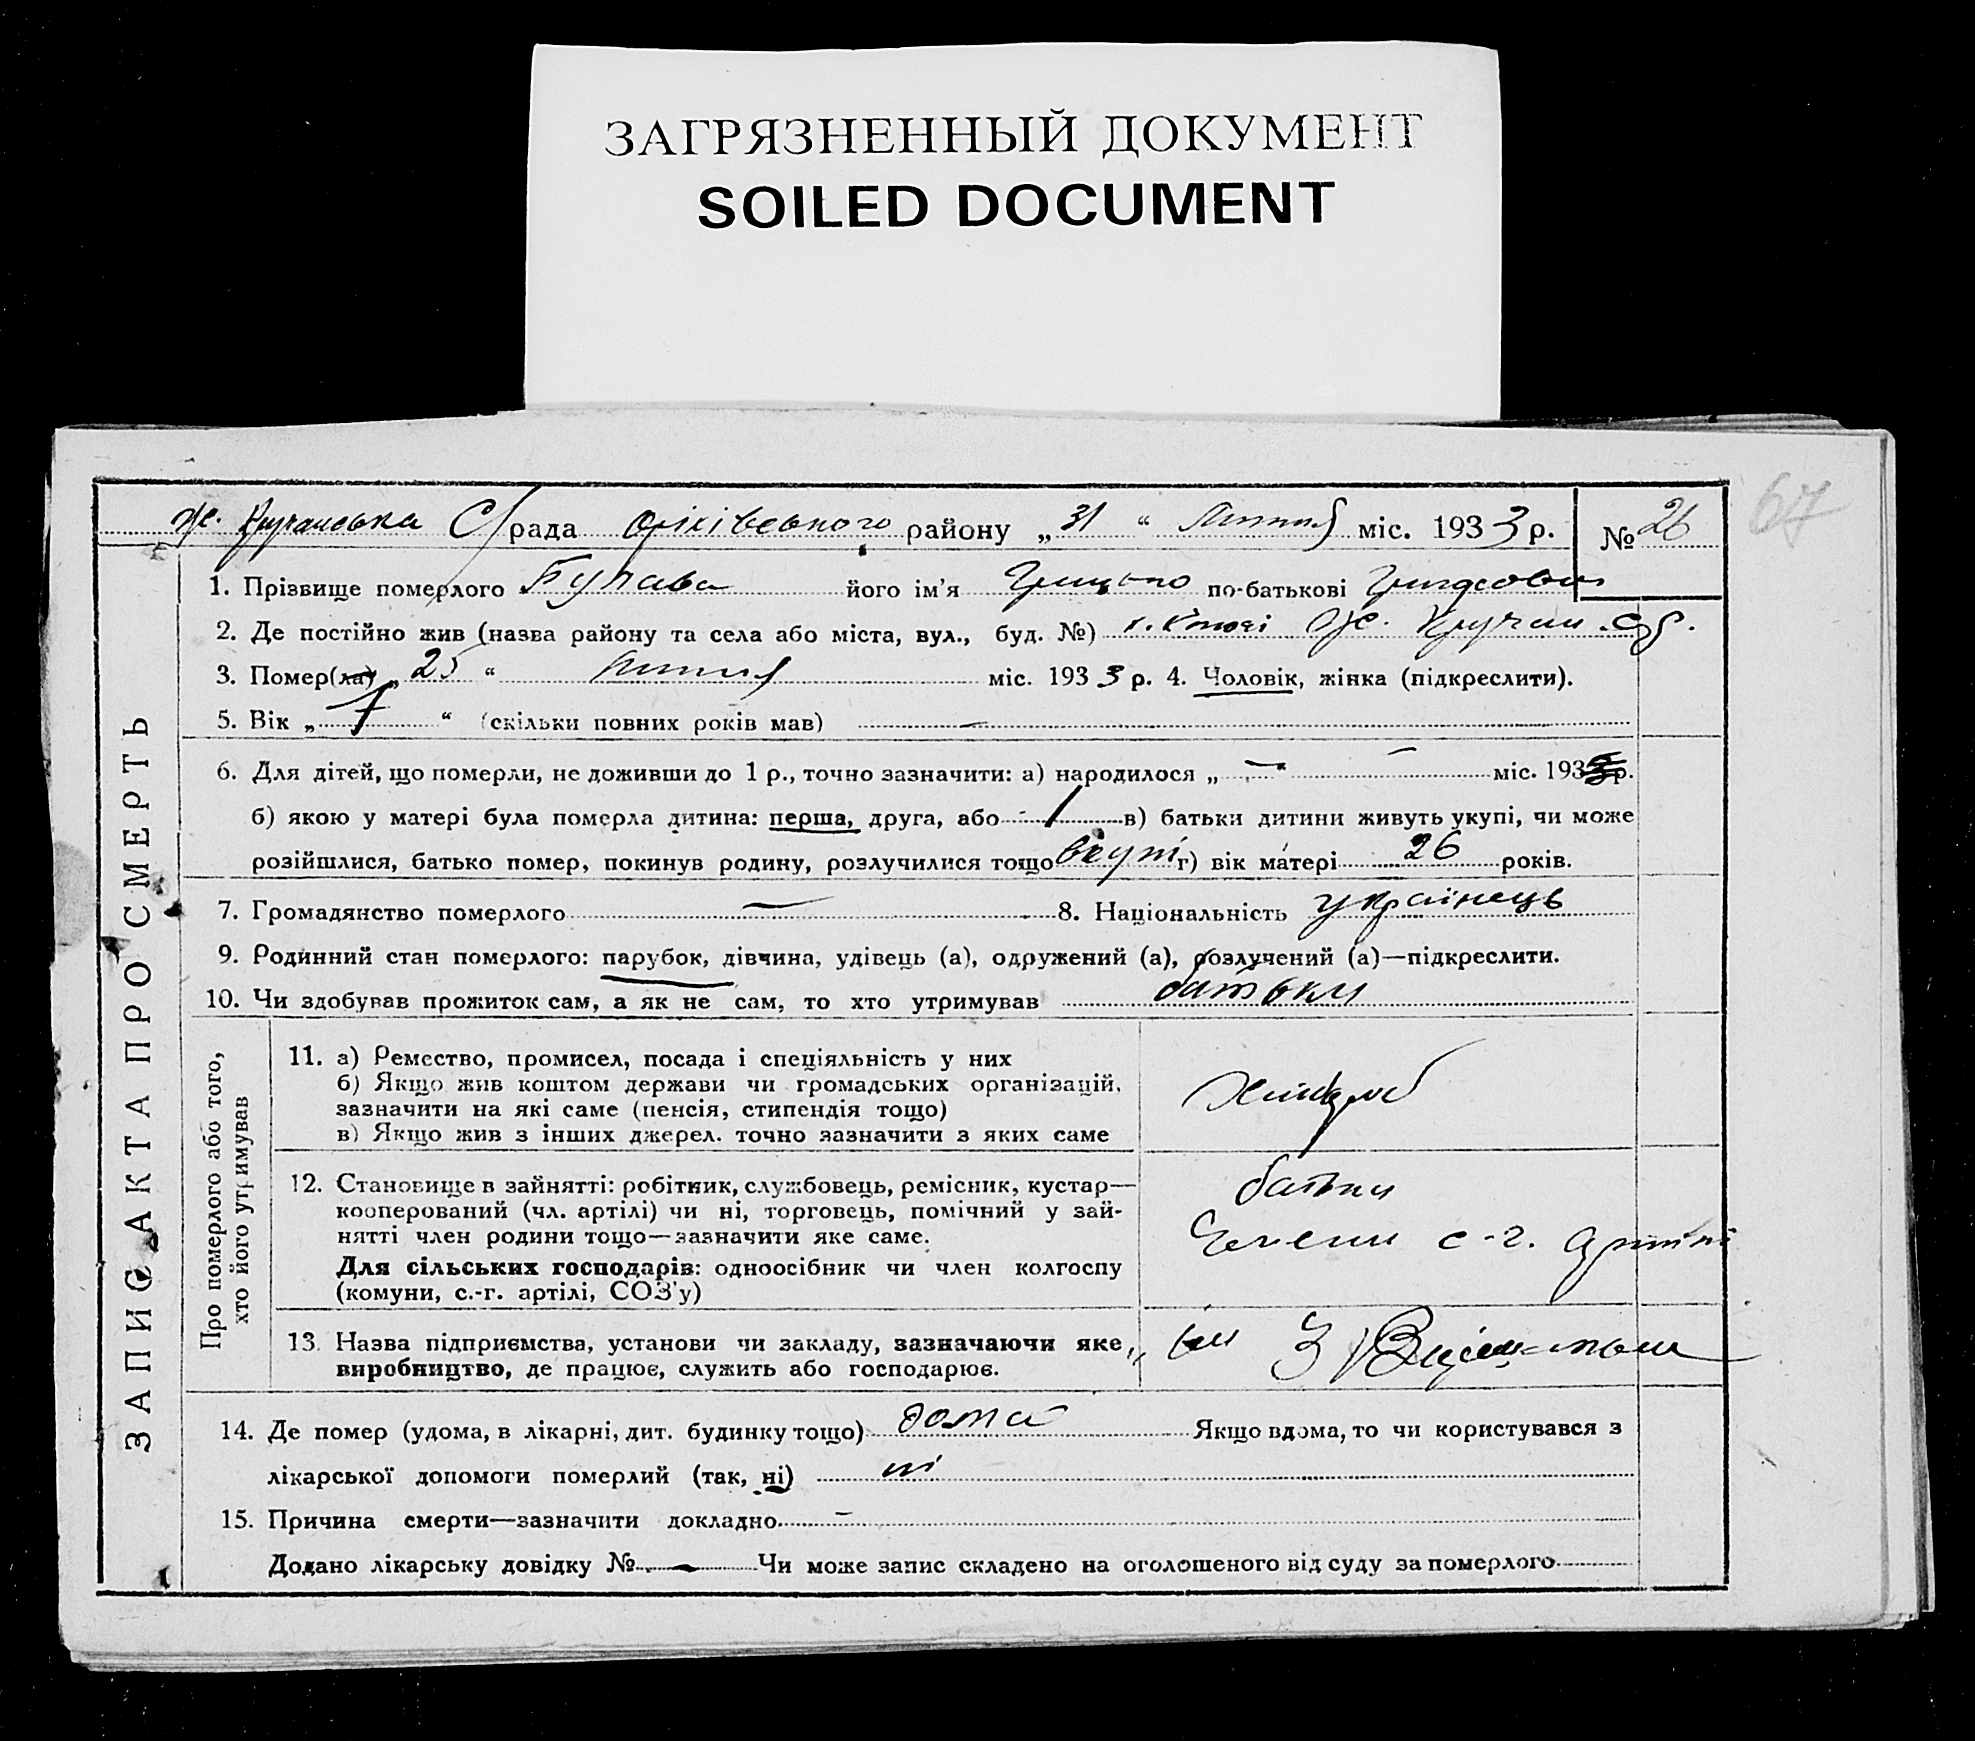 ЗАГРЯЗНЕННЫЙ ДОКУМЕНТ
SOILED DOCUMENT
67
С/рада Оріхівського району „31“ Липня міс. 1933 р. № 26
ЗАПИС АКТА ПРО СМЕРТЬ
1. Прізвище померлого Булава його ім'я Грицько по-батькові
2. Де постійно жив (назва району та села або міста, вул., буд. №)
3. Помер(ла) „25“ Липня міс. 1933 р. 4. Чоловік, жінка (підкреслити).
5. Вік „7“ (скільки повних років мав) —
6. Для дітей, що померли, не доживши до 1 р., точно зазначити: а) народилося „ — “ — міс. 193 р.
б) якою у матері була померла дитина: перша, друга, або в) батьки дитини живуть укупі, чи може
розійшлися, батько помер, покинув родину, розлучилися тощо вкупі г) вік матері 26 років.
7. Громадянство померлого — 8. Національність українець
9. Родинний стан померлого: парубок, дівчина, удівець (а), одружений (а), розлучений (а)—підкреслити.
10. Чи здобував прожиток сам, а як не сам, то хто утримував батьки
Про померлого або того,
хто його утримував
11. а) Ремество, промисел, посада і спеціяльність у них
б) Якщо жив коштом держави чи громадських організацій,
зазначити на які саме (пенсія, стипендія тощо)
в) Якщо жив з інших джерел. точно зазначити з яких саме
12. Становище в зайнятті: робітник, службовець, ремісник, кустар—
кооперований (чл. артілі) чи ні, торговець, помічний у зай-
нятті член родини тощо—зазначити яке саме.
Для сільських господарів: одноосібник чи член колгоспу
(комуни, с.-г. артілі, СОЗ'у)
батьки
Члени с-г. артілі
13. Назва підприємства, установи чи закладу, зазначаючи яке
виробництво, де працює, служить або господарює.
14. Де помер (удома, в лікарні, дит. будинку тощо) дома Якщо вдома, то чи користувався з
лікарської допомоги померлий (так, ні) ні
15. Причина смерти—зазначити докладно —
Додано лікарську довідку № — Чи може запис складено на оголошеного від суду за померлого